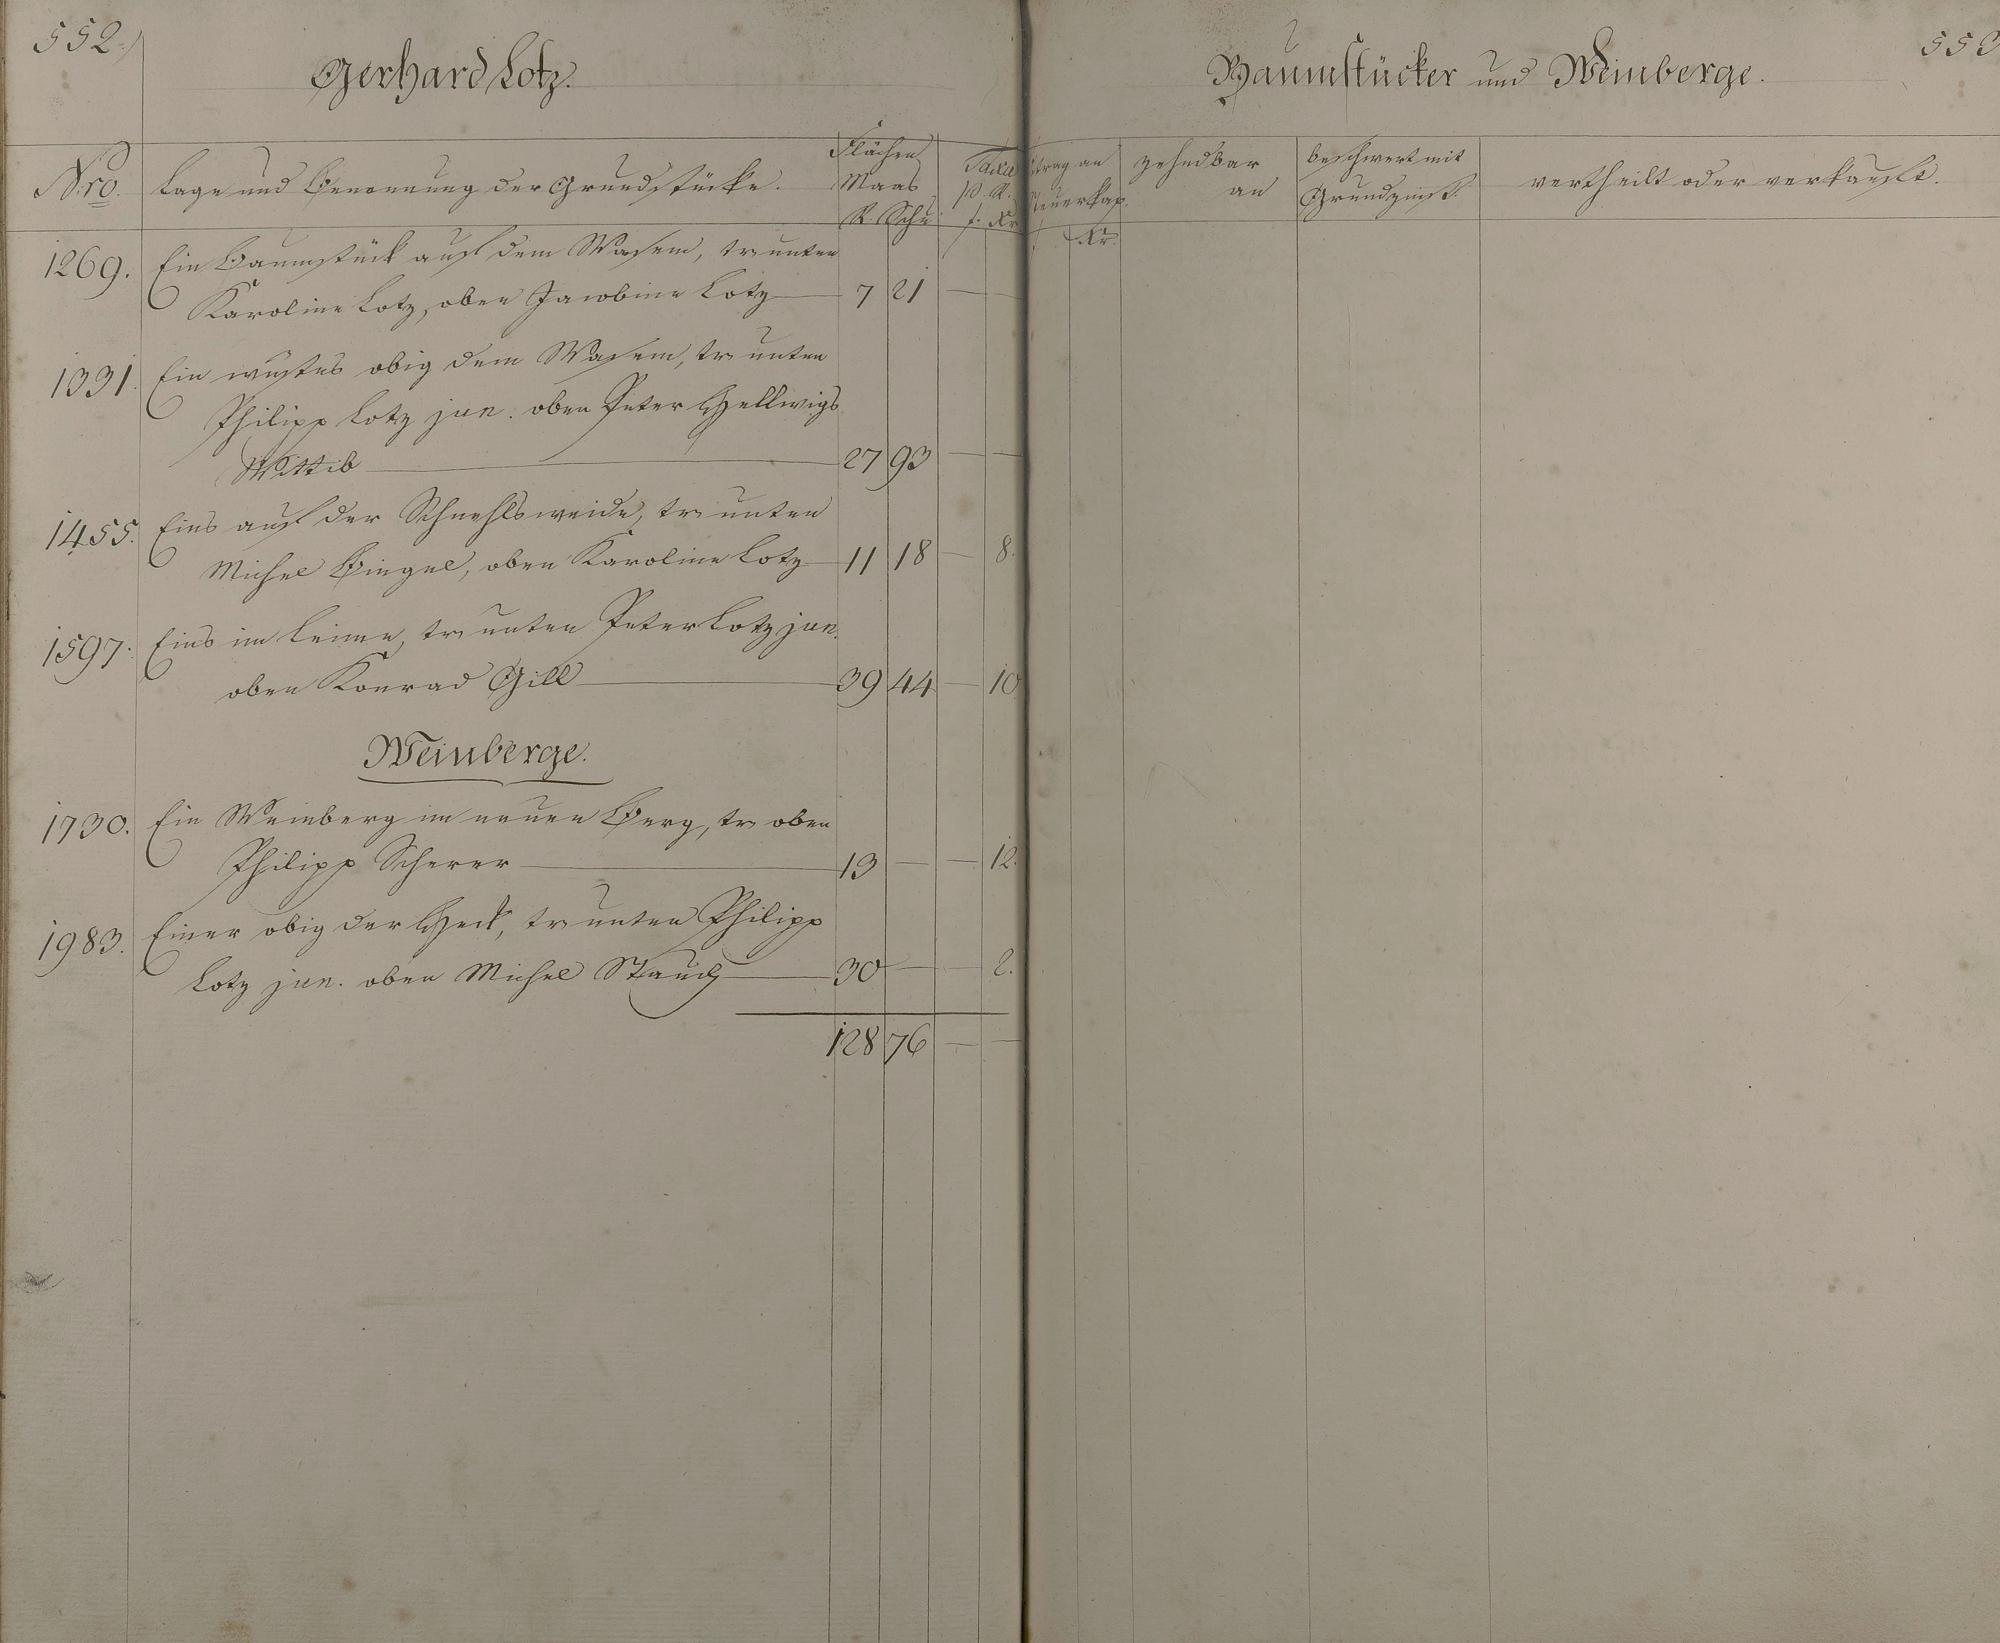 552.
Gerhard Lotz.
Nro. Lage und Benennung der Grundstücke. Flächen Maas R. Schu Taxe p. R. f. Kr
1269. Ein Baumstück auf dem Wasem, tr unten
Karoline Lotz, oben Jacobine Lotz — 7 21 — —
1331. Ein wüstes obig dem Wasem, tr unten
Philipp Lotz jun. oben Peter Hellwigs
Wittib — 27 93 — —
1455. Eins auf der Schnehlsweide, tr unten
Michel Bingel, oben Karoline Lotz — 11 18 — 8.
1597. Eins im Leime, tr unten Peter Lotz jun.
oben Konrad Gill — 39 44 — 10
Weinberge.
1730. Ein Weinberg im neuen Berg, tr oben
Philipp Scherer — 13 — — 12.
1983. Einer obig der Heck, tr unten Philipp
Lotz jun. oben Michel Stauch — 30 — — 2.
128 76 — —
553
Baumstücker und Weinberge.
trag an zehndbar beschwert mit vertheilt oder verkauft.
euerkap. an Grundzinß.
Kr.